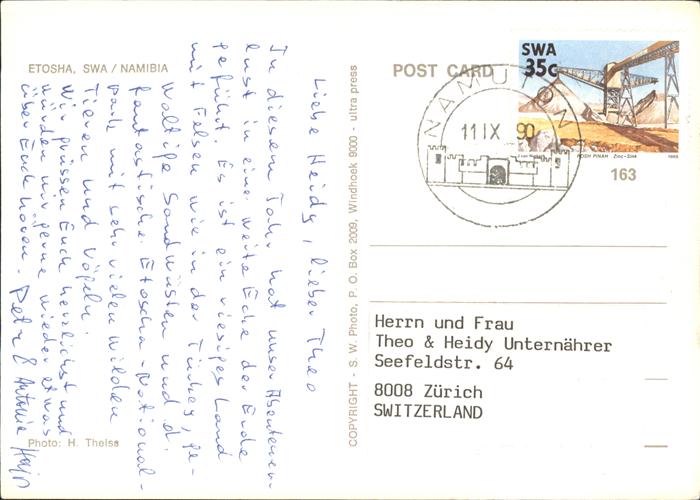 ETOSHA, SWA / NAMIBIA
Liebe Heidy, lieber Theo
In diesem Jahr hat unser Abenteuer-
lust in eine weite Ecke der Erde
geführt. Es ist ein riesiges Land
mit Felsen wie in der Türkey, ge-
waltige Sandwüsten und d.
fantastische Etoscha-National-
park mit sehr vielen wilden
Tieren und Vögeln.
Wir grüssen Euch herzlichst und
würden wir gerne wieder etwas
über Euch hören. Petr & Antonie
Photo: H. Theiss
COPYRIGHT - S. W. Photo, P. O. Box 2009, Windhoek 9000 - ultra press
POST CARD
SWA
35c
ROSH PINAH Zinc-Sink 1989
NAMUTONI
11 IX 90
163
Herrn und Frau
Theo & Heidy Unternährer
Seefeldstr. 64
8008 Zürich
SWITZERLAND